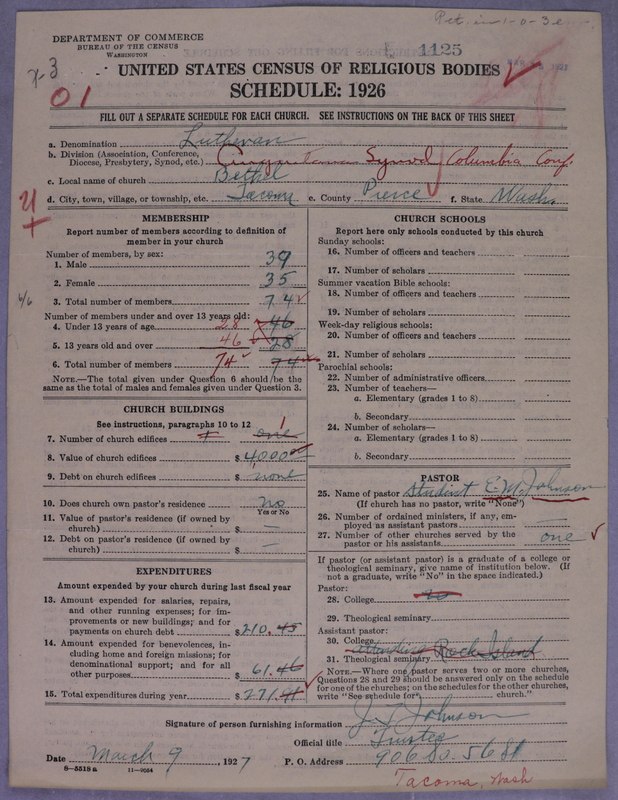 1125
DEPARTMENT OF COMMERCE
BUREAU OF THE CENSUS
WASHINGTON
UNITED STATES CENSUS OF RELIGIOUS BODIES
SCHEDULE: 1926
01
FILL OUT A SEPARATE SCHEDULE FOR EACH CHURCH. SEE INSTRUCTIONS ON THE BACK OF THIS SHEET
a. Denomination Lutheran
b. Division (Association, Conference, Diocese, Presbytery, Synod, etc.) Synod, Columbia Conf.
c. Local name of church Bethel
d. City, town, village, or township, etc. Tacoma e. County Pierce f. State Wash.
MEMBERSHIP
Report number of members according to definition of
member in your church
Number of members, by sex:
1. Male 39
2. Female 35
3. Total number of members 74
Number of members under and over 13 years old:
4. Under 13 years of age 28 46
5. 13 years old and over 46 28
6. Total number of members 74 74
NOTE.—The total given under Question 6 should be the
same as the total of males and females given under Question 3.
CHURCH BUILDINGS
See instructions, paragraphs 10 to 12
7. Number of church edifices one 1
8. Value of church edifices $4,000.00
9. Debt on church edifices $ none
10. Does church own pastor's residence no
Yes or No
11. Value of pastor's residence (if owned by
church) $ —
12. Debt on pastor's residence (if owned by
church) $ —
EXPENDITURES
Amount expended by your church during last fiscal year
13. Amount expended for salaries, repairs,
and other running expenses; for im-
provements or new buildings; and for
payments on church debt $210.45
14. Amount expended for benevolences, in-
cluding home and foreign missions; for
denominational support; and for all
other purposes $ 61.46
15. Total expenditures during year $ 271.91
CHURCH SCHOOLS
Report here only schools conducted by this church
Sunday schools:
16. Number of officers and teachers
17. Number of scholars
Summer vacation Bible schools:
18. Number of officers and teachers
19. Number of scholars
Week-day religious schools:
20. Number of officers and teachers
21. Number of scholars
Parochial schools:
22. Number of administrative officers
23. Number of teachers—
a. Elementary (grades 1 to 8)
b. Secondary
24. Number of scholars—
a. Elementary (grades 1 to 8)
b. Secondary
PASTOR
25. Name of pastor Student E.M. Johnson
(If church has no pastor, write "None")
26. Number of ordained ministers, if any, em-
ployed as assistant pastors —
27. Number of other churches served by the
pastor or his assistants one
If pastor (or assistant pastor) is a graduate of a college or
theological seminary, give name of institution below. (If
not a graduate, write "No" in the space indicated.)
Pastor:
28. College no
29. Theological seminary
Assistant pastor:
30. College
attending Rock Island
31. Theological seminary
NOTE.—Where one pastor serves two or more churches,
Questions 28 and 29 should be answered only on the schedule
for one of the churches; on the schedules for the other churches,
write "See schedule for church."
Signature of person furnishing information J. Johnson
Official title Trustee
Date March 9, 1927 P. O. Address 906 So. 56 St
8—5518 a 11—9054
Tacoma, Wash